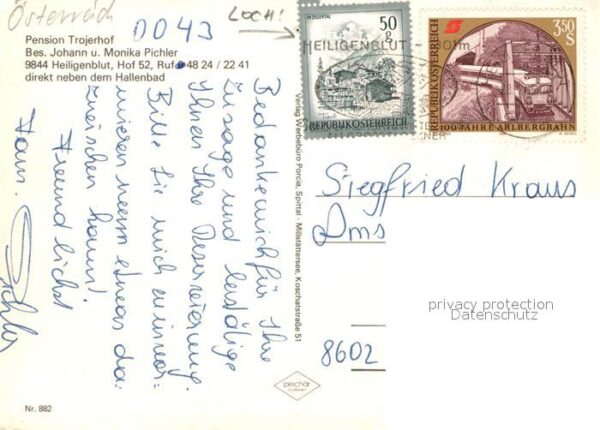 Österreich
0043
LOCH!
Pension Trojerhof
Bes. Johann u. Monika Pichler
9844 Heiligenblut, Hof 52, Ruf 48 24 / 22 41
direkt neben dem Hallenbad
Bedanke mich für Ihre
Zusage und bestätige
Ihnen Ihre Reservierung.
Bitte Sie mich zu
wenn etwas da-
zwischen kommt!
Freundlichst
Fam. Pichler
Verlag Werbebüro Porcia, Spittal - Millstättersee, Koschatstraße 51
IM ZILLERTAL
50 g
REPUBLIK ÖSTERREICH
HEILIGENBLUT
REPUBLIK ÖSTERREICH
3.50 S
100 JAHRE ARLBERGBAHN
Siegfried Kraus
8602
privacy protection
Datenschutz
Nr. 882